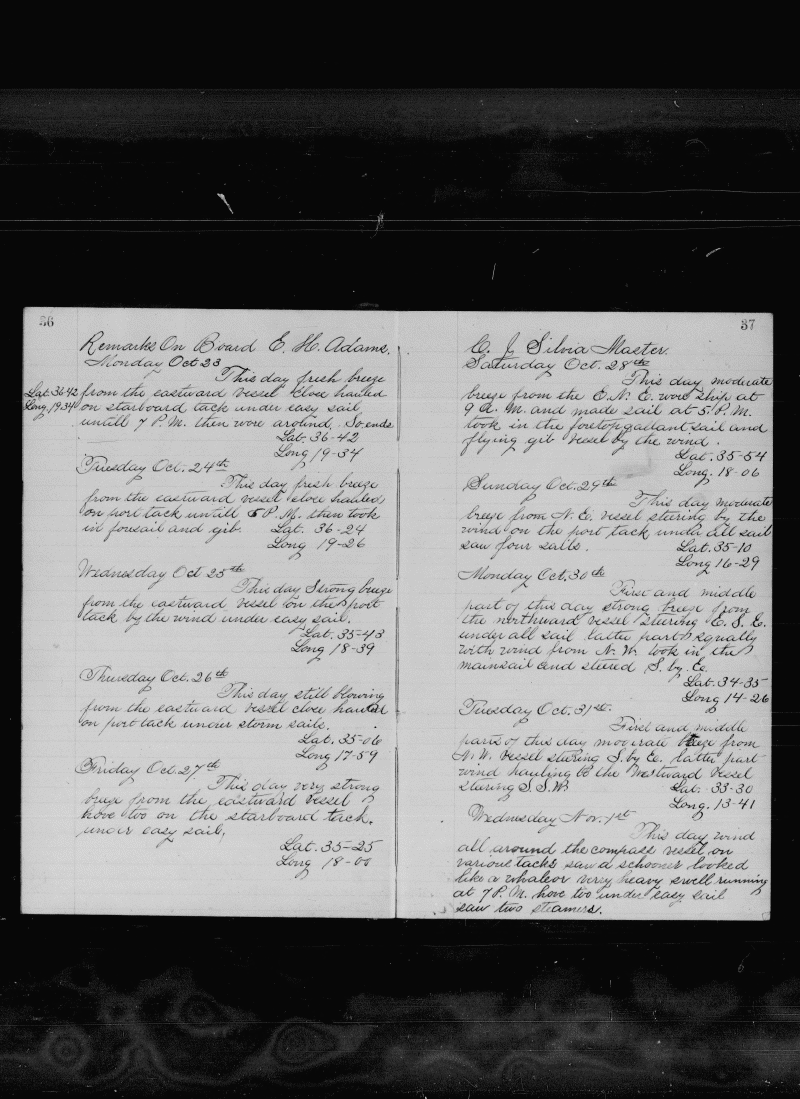 36
Remarks On Board E. H. Adams.
Monday Oct 23
This day fresh breeze
Lat. 36-42 from the eastward vessel close hauled
Long. 19-34 on starboard tack under easy sail
untill 7 P.M. then wore around. So ends
Lat. 36-42
Long 19-34
Tuesday Oct. 24th
This day fresh breeze
from the eastward vessel close hauled
on port tack untill 5 P.M. then took
in foresail and gib. Lat. 36-24
Long 19-26
Wednesday Oct 25th
This day Strong breeze
from the eastward vessel on the port
tack by the wind under easy sail.
Lat. 35-43
Long 18-39
Thursday Oct. 26th
This day still blowing
from the eastward vessel close hauled
on port tack under storm sails.
Lat. 35-06
Long 17-59
Friday Oct. 27th
This day very strong
breeze from the eastward vessel
hove too on the starboard tack.
under easy sail,
Lat. 35-25
Long 18-00
37
C. J. Silvia Master.
Saturday Oct. 28th
This day moderate
breeze from the E.N.E. wore ship at
9 A.M. and made sail at 5. P.M.
took in the foretopgallant sail and
flying gib vessel by the wind.
Lat. 35-54
Long. 18-06
Sunday Oct. 29th
This day moderate
breeze from N.E. vessel steering by the
wind on the port tack under all sail
saw four sails. Lat. 35-10
Long 16-29
Monday Oct. 30th
First and middle
part of this day strong breeze from
the northward vessel steering E.S.E.
under all sail latter part squally
with wind from N.W. took in the
mainsail and stered S. by E.
Lat. 34-35
Long 14-26
Tuesday Oct. 31st.
First and middle
parts of this day moderate breeze from
N.W. vessel stering S. by E. latter part
wind hauling to the Westward vessel
stering S.S.W. Lat. 33-30
Long. 13-41
Wednesday Nov. 1st
This day wind
all around the compass vessel on
various tacks saw a schooner looked
like a whaleor very heavy swell running
at 7 P.M. hove too under easy sail
saw two steamers.